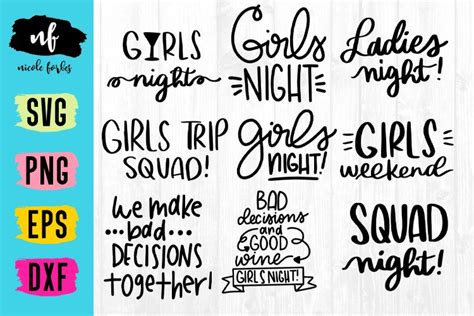 nf
nicole forbes
SVG
PNG
EPS
DXF
GIRLS
night
Girls
NIGHT
Ladies
night!
GIRLS TRIP
SQUAD!
girls
NIGHT!
GIRLS
weekend
we make
...bad...
DECISIONS
together!
BAD
decisions
and
GOOD
wine
GIRLS NIGHT!
SQUAD
night!